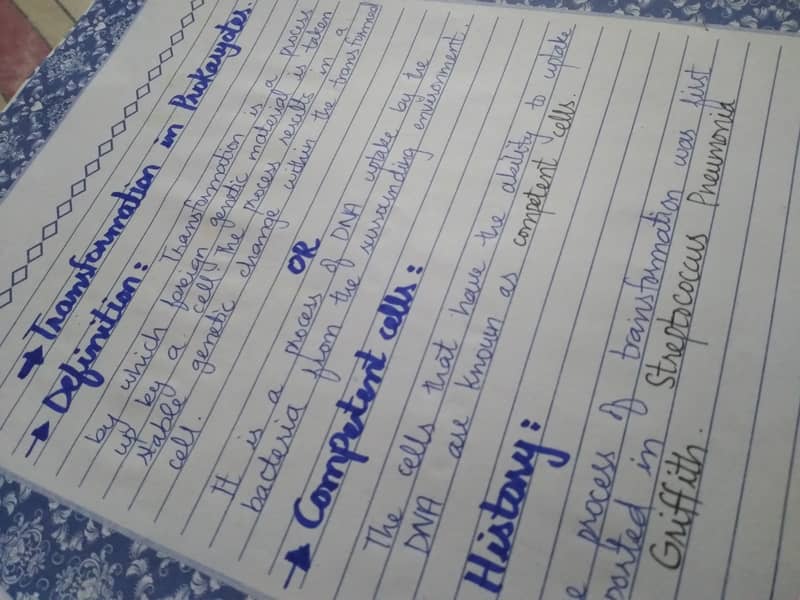 → Transformation in Prokaryotes.
→ Definition:
Transformation is a process
by which foreign genetic material is taken
up by a cell. The process results in a
stable genetic change within the transformed
cell.
OR
It is a process of DNA uptake by the
bacteria from the surrounding environment.
→ Competent cells:
The cells that have the ability to uptake
DNA are known as competent cells.
History:
e process of transformation was first
ported in Streptococcus Pneumonia
Griffith.